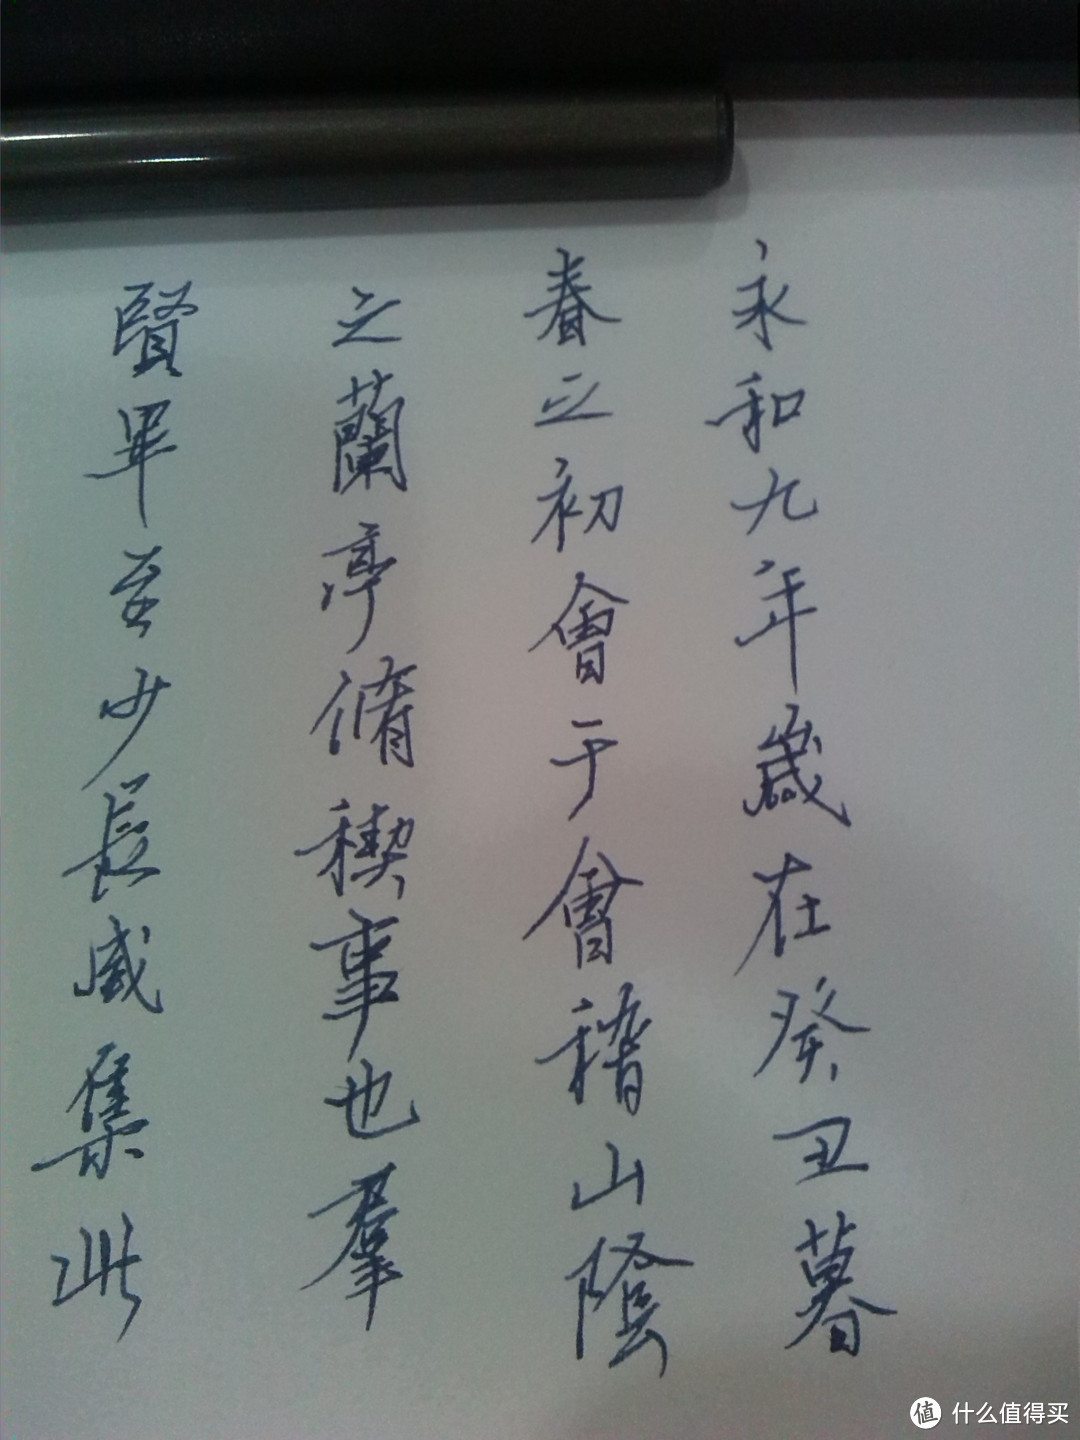 永和九年歲在癸丑暮
春之初會于會稽山陰
之蘭亭脩稧事也羣
賢畢至少長咸集此
值 什么值得买